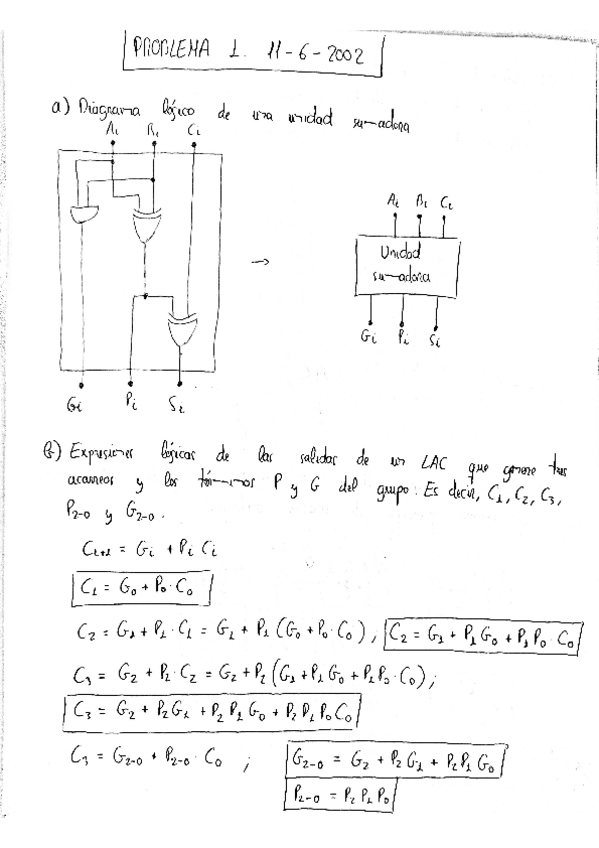 PROBLEMA 1. 11-6-2002
a) Diagrama lógico de una unidad sumadora
Ai Bi Ci
Gi Pi Si
→
Ai Bi Ci
Unidad
sumadora
Gi Pi Si
b) Expresiones lógicas de las salidas de un LAC que genere tres
acarreos y los términos P y G del grupo. Es decir, C1, C2, C3,
P2-0 y G2-0.
Ci+1 = Gi + Pi Ci
C1 = G0 + P0·C0
C2 = G1 + P1·C1 = G1 + P1 (G0 + P0·C0), C2 = G1 + P1 G0 + P1 P0·C0
C3 = G2 + P2·C2 = G2 + P2 (G1 + P1 G0 + P1 P0·C0);
C3 = G2 + P2 G1 + P2 P1 G0 + P2 P1 P0 C0
C3 = G2-0 + P2-0·C0 ; G2-0 = G2 + P2 G1 + P2 P1 G0
P2-0 = P2 P1 P0